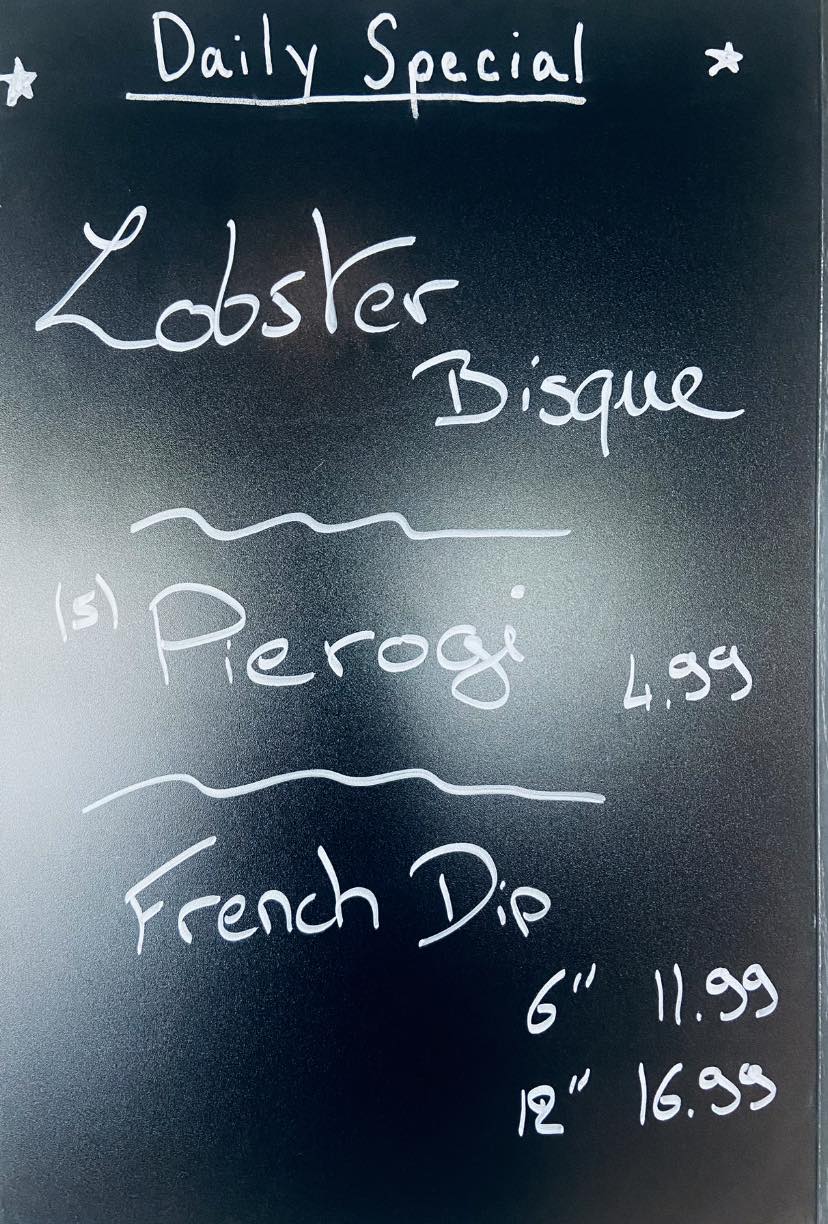 Daily Special
Lobster
Bisque
(5) Pierogi 4.99
French Dip
6" 11.99
12" 16.99